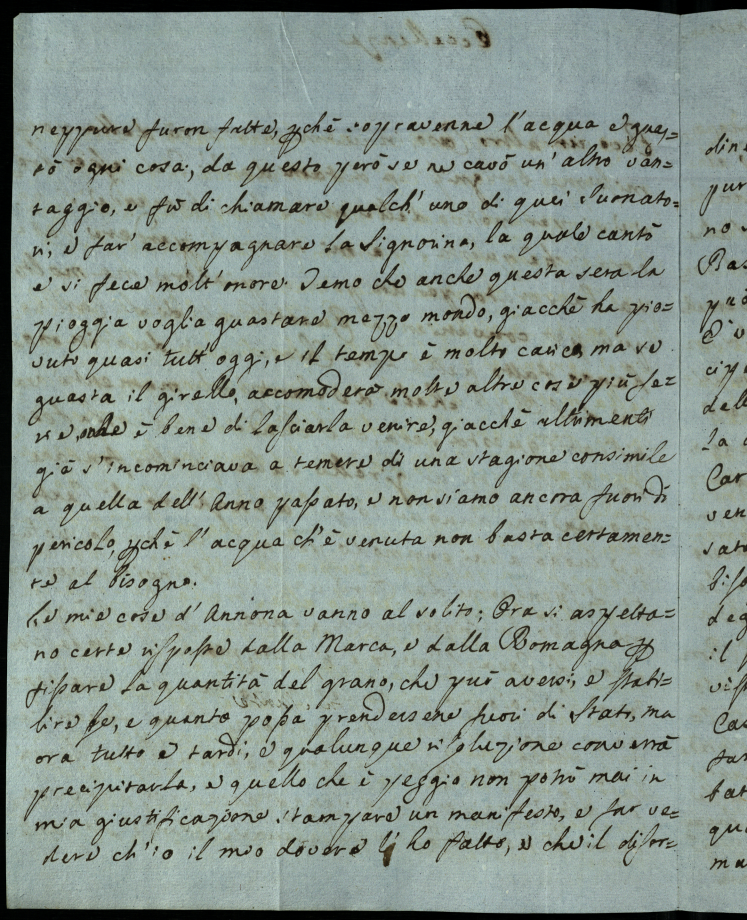 neppure furon fatte, pchè sopravenne l'acqua e guas=
tò ogni cosa, da questo però se ne cavò un'altro van=
taggio, e fù di chiamare qualch'uno di quei Suonato=
ri, e far' accompagnare la Signorina, la quale cantò
e si fece molt'onore. Temo che anche questa sera la
pioggia voglia guastare mezzo mondo, giacchè ha pio=
vuto quasi tutt'oggi, e il tempo è molto carico, ma se
guasta il girello, accomoderà molte altre cose più se=
rie, è bene di lasciarla venire, giacchè altrimenti
già s'incominciava a temere di una stagione consimile
a quella dell'Anno passato, e non siamo ancora fuori di
pericolo, pchè l'acqua ch'è venuta non basta certamen=
te al bisogno.
Le mie cose d'Annona vanno al solito; Ora si aspetta=
no certe risposte dalla Marca, e dalla Romagna p
fissare la quantità del grano, che può aversi, e stabi=
lire se, e quanto possa prendersene fuori di Stato, ma
ora tutto è tardi, e qualunque risoluzione converrà
precipitarla, e quello che è peggio non potrò mai in
mia giustificazione stampare un manifesto, e far ve=
dere ch'io il mio dovere l'ho fatto, e che il disor=